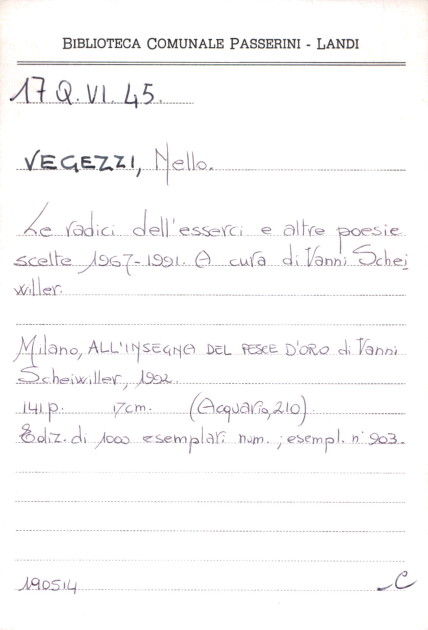 BIBLIOTECA COMUNALE PASSERINI - LANDI
17 Q. VI. 45.
VEGEZZI, Nello.
Le radici dell'esserci e altre poesie
scelte 1967-1991. A cura di Vanni Schei
willer.
Milano, ALL'INSEGNA DEL PESCE D'ORO di Vanni
Scheiwiller, 1992.
141 p. 17cm. (Acquario, 210).
Ediz. di 1000 esemplari num.; esempl. n° 903.
190514 C